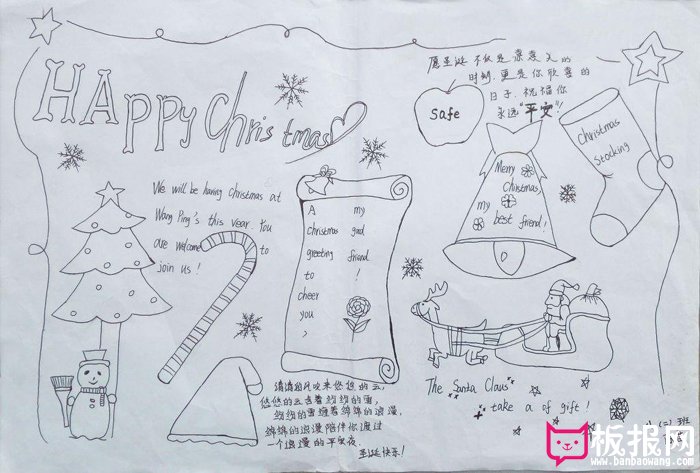 HAppy Christmas
愿圣诞不仅是亲亲美的
时刻,更是你欣喜的
日子,祝福你
永远"平安"!
Safe
Christmas
Stocking
Merry
Christmas,
my
best friend!
We will be having Christmas at
Wang Ping's this year. You
are welcome to
join us!
A my
Christmas god
greeting friend
to !
cheer
you
,
The Santa Claus
take a of gift!
清清的风吹来悠悠的云,
悠悠的云吉着纷纷的雪,
纷纷的雪缠着绵绵的浪漫,
绵绵的浪漫陪伴你渡过
一个浪漫的平安夜.
圣诞快乐!
(二)班
板报网
www.banbaowang.com